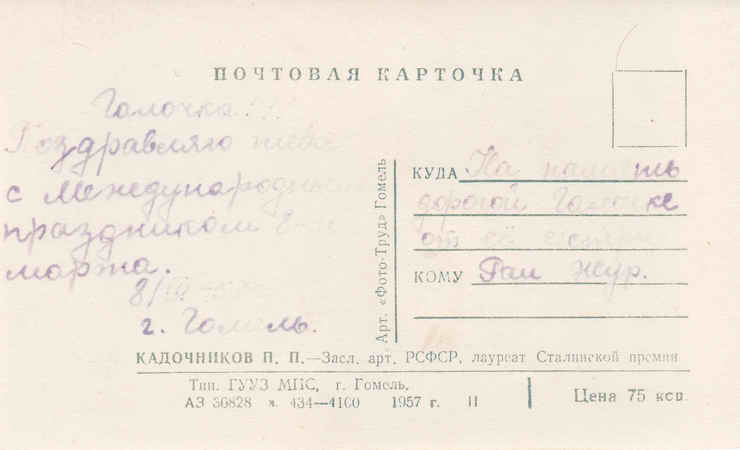 ПОЧТОВАЯ КАРТОЧКА
Галочка!!!
Поздравляю тебя
с Международным
праздником 8-го
марта.
8/III
г. Гомель.
Арт. «Фото-Труд» Гомель
КУДА На память
дорогой Галочке
от её сестры
КОМУ Раи Жур.
КАДОЧНИКОВ П. П.—Засл. арт. РСФСР, лауреат Сталинской премии
Тип. ГУУЗ МПС, г. Гомель.
АЗ 36828 з. 434—4100 1957 г. II
Цена 75 коп